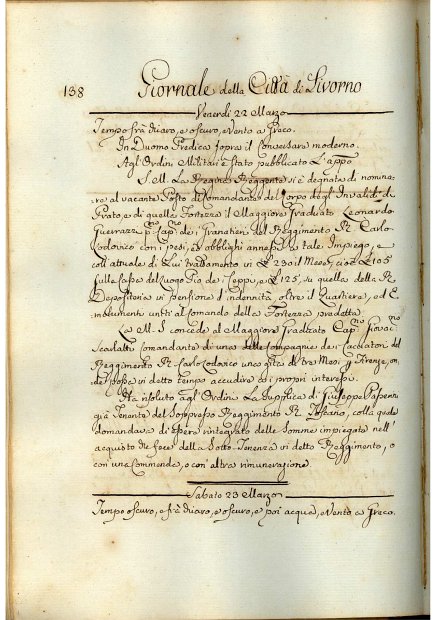 138 Giornale della Città di Livorno
Venerdi 22 Marzo
Tempo frà chiaro, e oscuro, e Vento a Greco.
In Duomo Predica sopra il Conversare moderno.
Agl'Ordini Militari è stato pubblicato L'app.o
S. M. La Regina Reggente si è degnata di nomina-
re al vacante Posto di Comandante del Corpo degl'Invalidi di
Prato, e di quella Fortezza il Maggiore Graduato Leonardo
Guerrazzi p.mo Cap.no dei Granatieri del Reggimento R.l Carlo
Lodovico con i pesi, ed obblighi annessi a tale Impiego, e
coll'attuale di Lui trattamento di £ 230 il Mese, cioè £ 105
sulla Cassa del Luogo Pio del Ceppo, e £ 125, su quella della R.l
Depositeria di pensione d'indennità oltre il Quartiere, ed E-
molumenti uniti al Comando della Fortezza predetta.
La M. S. concede al Maggiore Graduato Cap.no Giovacc.no
Scarlatti Comandante di una delle Compagnie dei Cacciatori del
Reggimento R.l Carlo Lodovico una gita di tre Mesi p Firenze, on-
de possa in detto tempo accudire ai propri interessi.
Ha risoluto agl'Ordini La Supplica di Giuseppe
già Tenente del Soppresso Reggimento R.l Toscano, colla quale
domandava di essere rintegrato delle Somme impiegate nell'
acquisto che fece della Sotto-Tenenza in detto Reggimento, o
con una Commenda, o con altra rimunerazione.
Sabato 23 Marzo
Tempo oscuro, e frà chiaro, e oscuro, e poi acqua, e Vento a Greco.